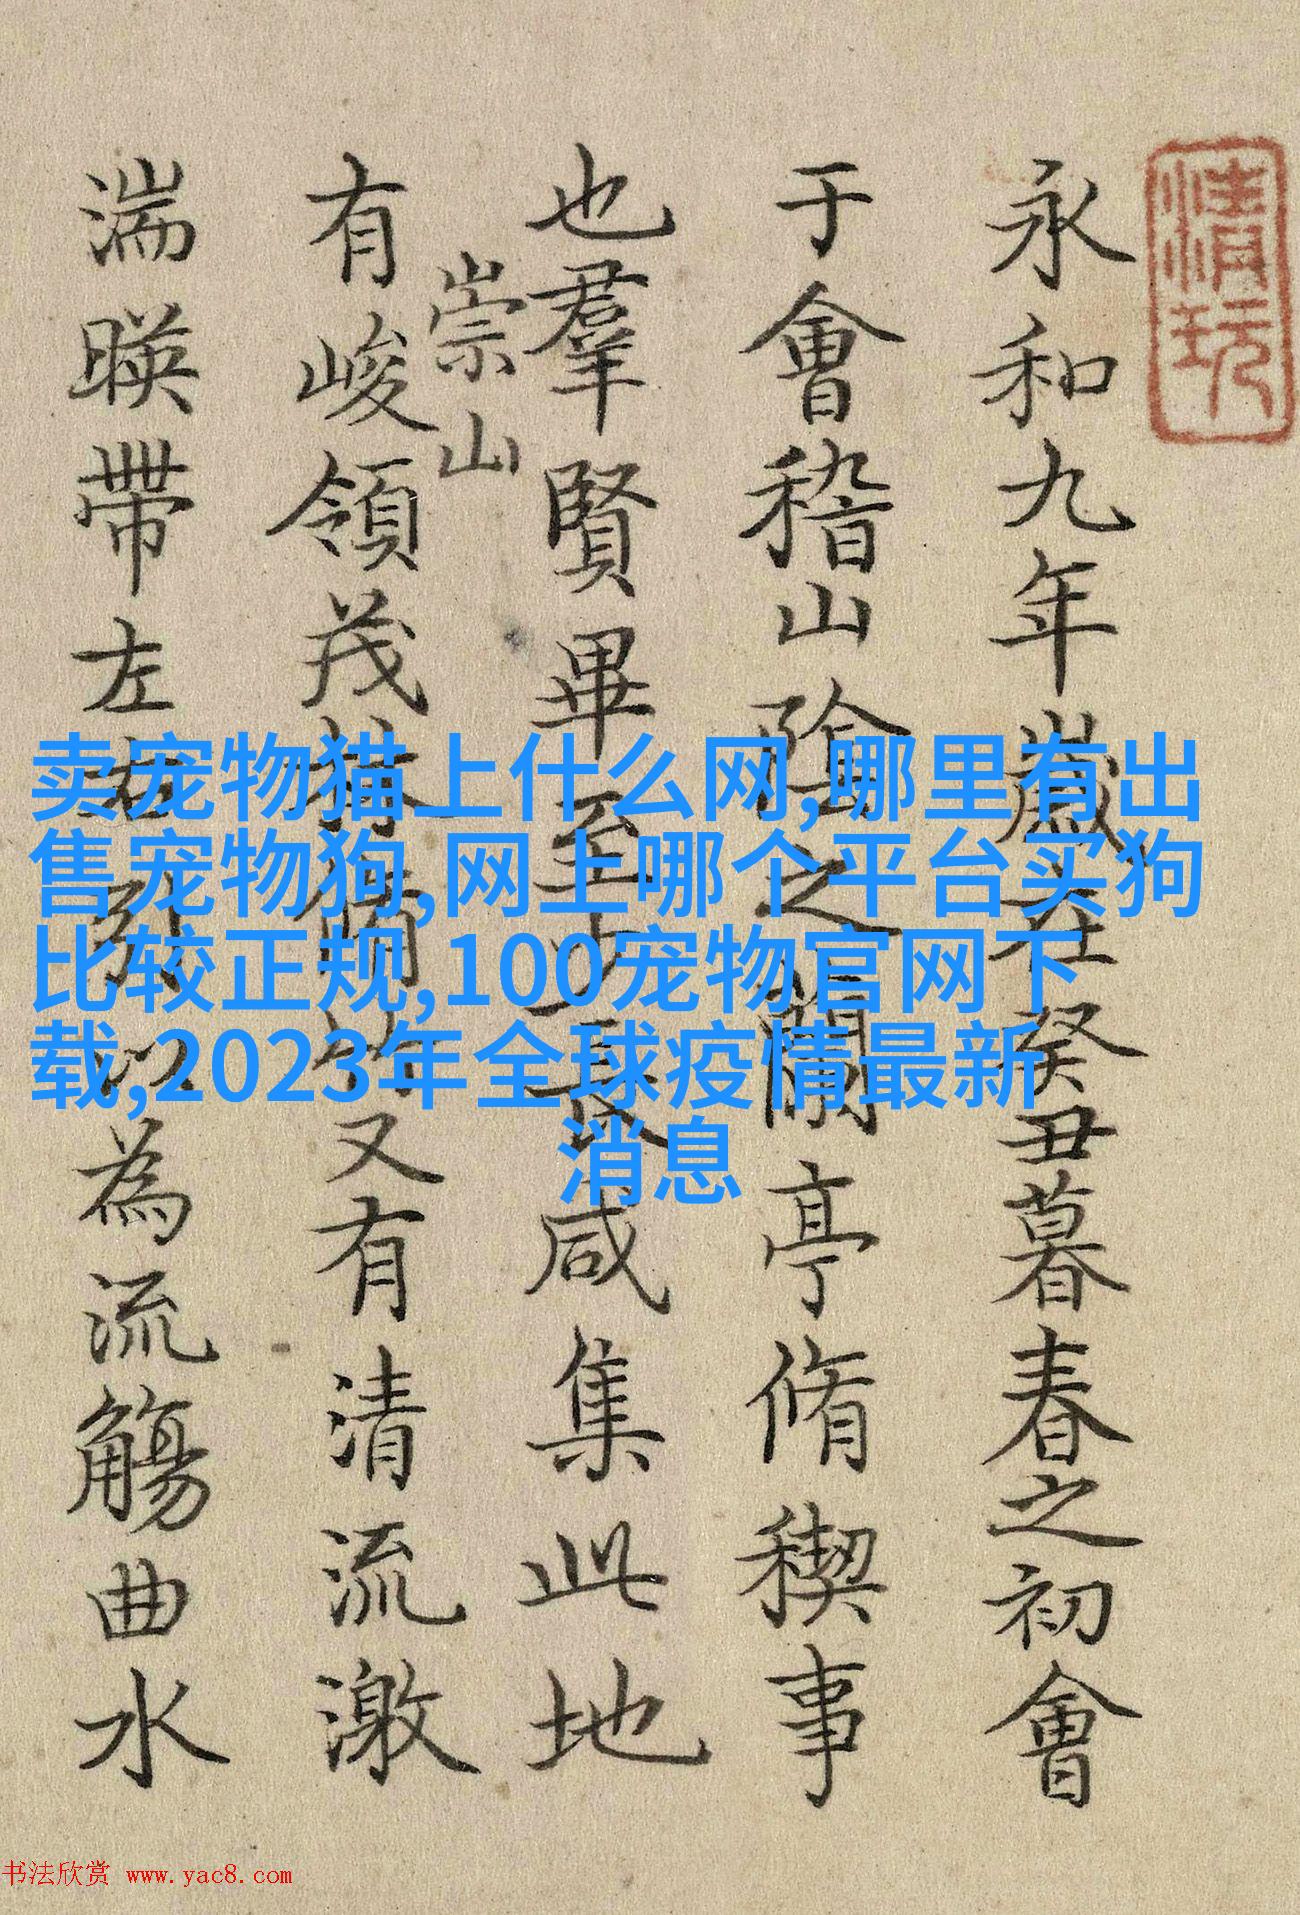 清玩
永和九年歲在癸丑暮春之初會
于會稽山陰之蘭亭脩稧事
也羣賢畢至少長咸集此地
崇山
有峻領茂林脩竹又有清流激
湍暎帶左右引以為流觴曲水
卖宠物猫上什么网,哪里有出
售宠物狗,网上哪个平台买狗
比较正规,100宠物官网下
载,2023年全球疫情最新
消息
书法欣赏 www.yac8.com